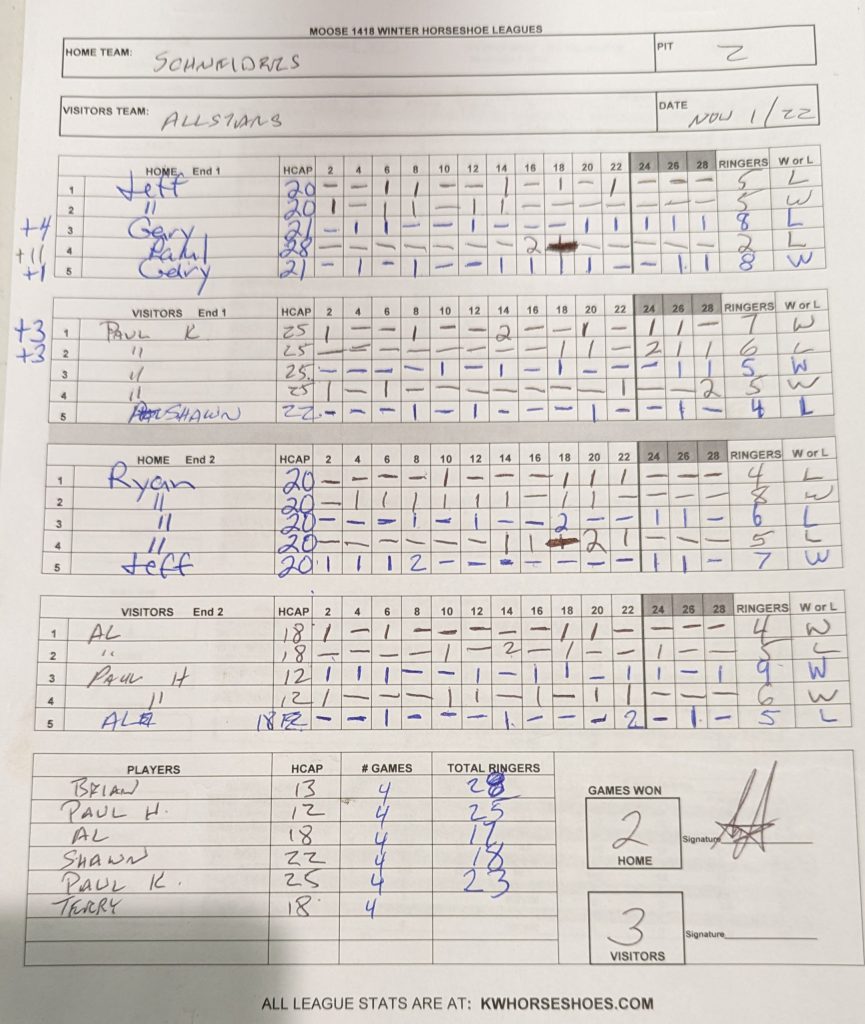 MOOSE 1418 WINTER HORSESHOE LEAGUES
HOME TEAM: SCHNEIDERS PIT 2
VISITORS TEAM: ALLSTARS DATE NOV 1/22
HOME End 1 HCAP 2 4 6 8 10 12 14 16 18 20 22 24 26 28 RINGERS W or L
1 Jeff 20 - - 1 1 - - 1 - 1 - 1 - - - 5 L
2 " 20 1 - 1 1 - 1 1 - - - - - - - 5 W
+4 3 Gary 21 - 1 1 - - 1 - - - 1 1 1 1 1 8 L
+11 4 Paul 28 - - - - - - - 2 - - - - - 2 L
+1 5 Gary 21 - 1 - 1 - - 1 1 1 1 - - 1 1 8 W
VISITORS End 1 HCAP 2 4 6 8 10 12 14 16 18 20 22 24 26 28 RINGERS W or L
+3 1 PAUL K 25 1 - - 1 - - 2 - - 1 - 1 1 - 7 W
+3 2 " 25 - - - - - - - - 1 1 - 2 1 1 6 L
3 " 25 - - - - 1 - 1 - 1 - - - 1 1 5 W
4 " 25 1 - 1 - - - - - - - 1 - - 2 5 W
5 SHAWN 22 - - - 1 - 1 - - - 1 - - 1 - 4 L
HOME End 2 HCAP 2 4 6 8 10 12 14 16 18 20 22 24 26 28 RINGERS W or L
1 Ryan 20 - - - - 1 - - - 1 1 1 - - - 4 L
2 " 20 - 1 1 1 1 1 1 - 1 1 - - - - 8 W
3 " 20 - - - 1 - 1 - - 2 - - 1 1 - 6 L
4 " 20 - - - - - - 1 1 2 1 - - - 5 L
5 Jeff 20 1 1 1 2 - - - - - - - 1 1 - 7 W
VISITORS End 2 HCAP 2 4 6 8 10 12 14 16 18 20 22 24 26 28 RINGERS W or L
1 AL 18 1 - 1 - - - - - 1 1 - - - - 4 W
2 " 18 - - - - 1 - 2 - 1 - - 1 - - 5 L
3 PAUL H 12 1 1 1 - - 1 - 1 1 - 1 1 - 1 9 W
4 " 12 1 - - - 1 1 - 1 - 1 1 - - - 6 W
5 AL 18 - - 1 - - - 1 - - - 2 - 1 - 5 L
PLAYERS HCAP # GAMES TOTAL RINGERS
BRIAN 13 4 28
PAUL H. 12 4 25
AL 18 4 17
SHAWN 22 4 18
PAUL K. 25 4 23
TERRY 18 4
GAMES WON
2
HOME
Signature
3
VISITORS
Signature
ALL LEAGUE STATS ARE AT: KWHORSESHOES.COM